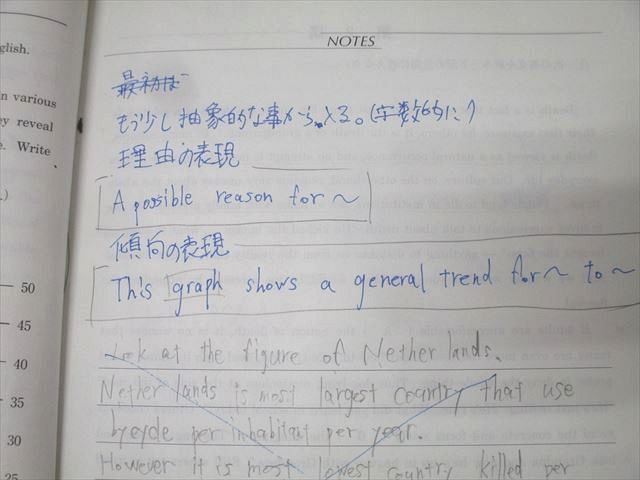 NOTES
glish.
n various
ey reveal
e. Write
.)
50
45
40
35
30
25
最初は
もう少し抽象的な事から入る。(字数的に!)
理由の表現
A possible reason for ～
傾向の表現
This graph shows a general trend for～ to ～
Look at the figure of Netherlands.
Netherlands is most largest country that use
bycycle per inhabitant per year.
However it is most lowest country killed per